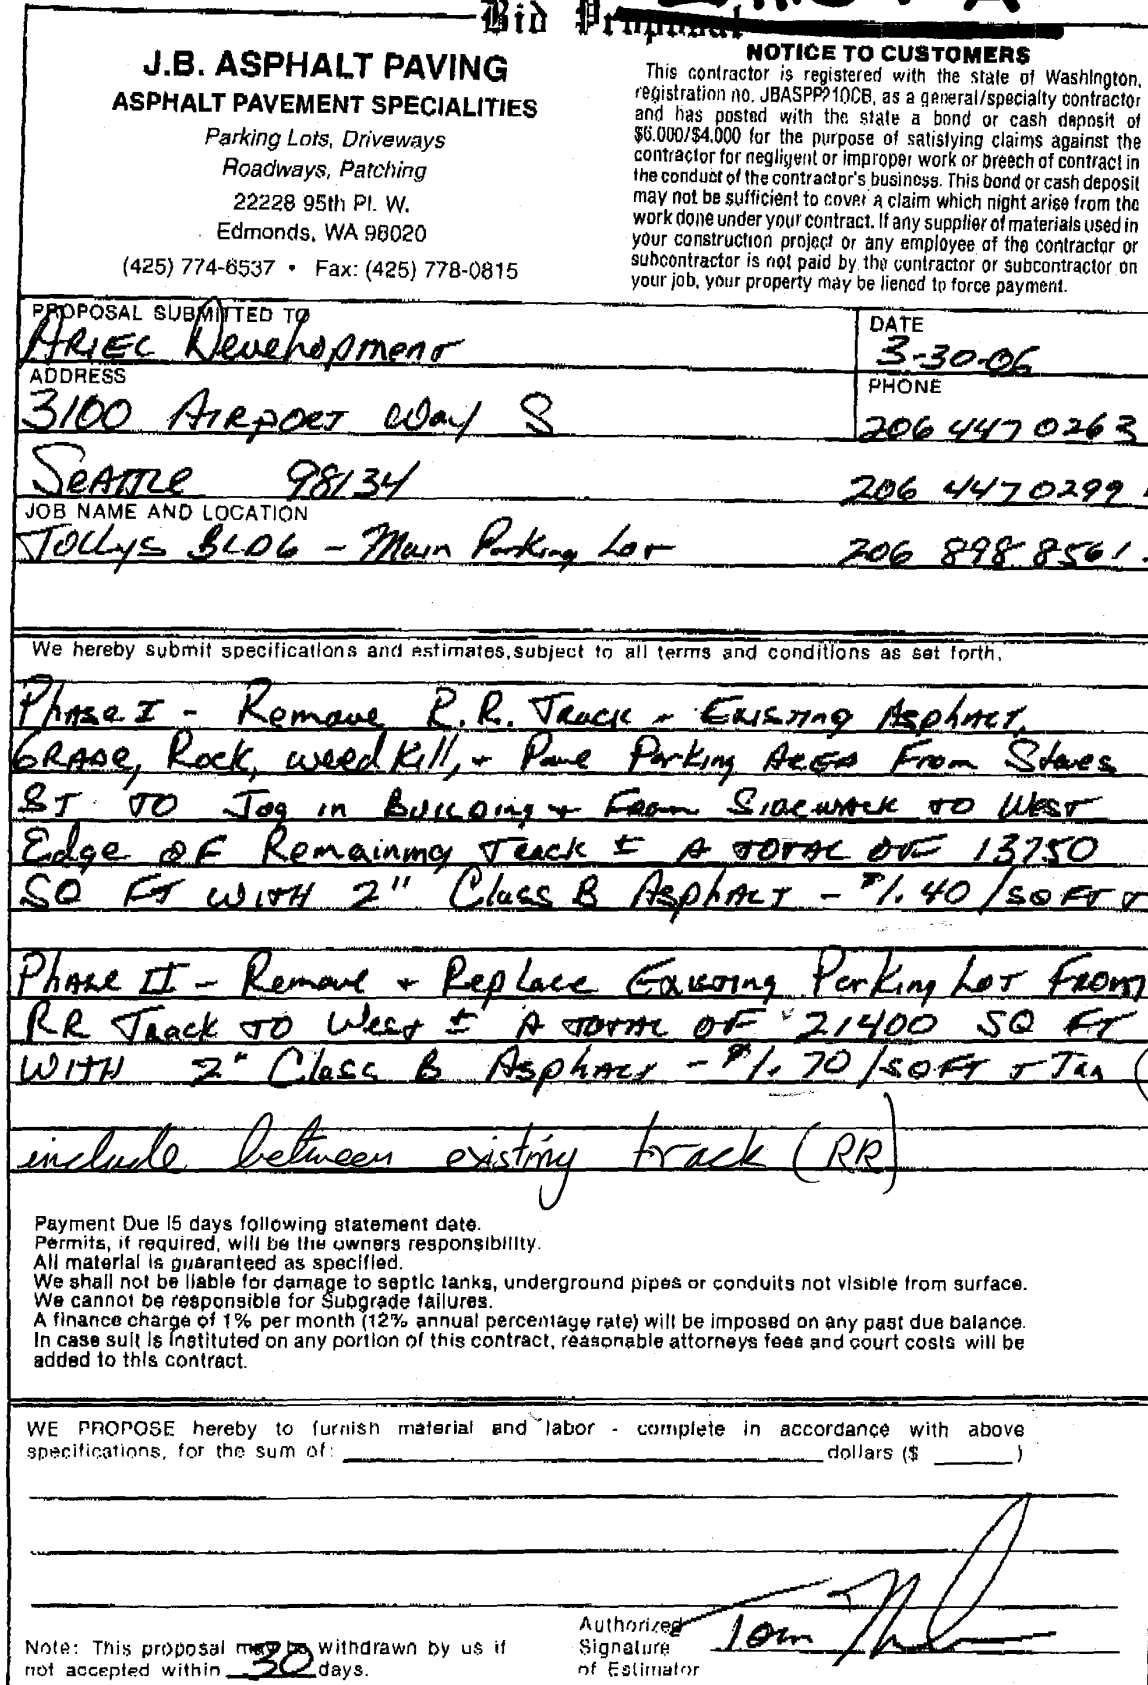 Bid Proposal
J.B. ASPHALT PAVING
ASPHALT PAVEMENT SPECIALITIES
Parking Lots, Driveways
Roadways, Patching
22228 95th Pl. W.
Edmonds, WA 98020
(425) 774-6537 • Fax: (425) 778-0815
NOTICE TO CUSTOMERS
This contractor is registered with the state of Washington,
registration no. JBASPP210CB, as a general/specialty contractor
and has posted with the state a bond or cash deposit of
$6.000/$4.000 for the purpose of satisfying claims against the
contractor for negligent or improper work or breech of contract in
the conduct of the contractor's business. This bond or cash deposit
may not be sufficient to cover a claim which night arise from the
work done under your contract. If any supplier of materials used in
your construction project or any employee of the contractor or
subcontractor is not paid by the contractor or subcontractor on
your job, your property may be liened to force payment.
PROPOSAL SUBMITTED TO
ARIEL Development
DATE
3-30-06
ADDRESS
3100 AIRPORT Way S
PHONE
206 447 0263
SEATTLE 98134
206 447 0299
JOB NAME AND LOCATION
TULLYS BLDG - Main Parking Lot
206 898 8561
We hereby submit specifications and estimates, subject to all terms and conditions as set forth.
Phase I - Remove R.R. Track + Existing Asphalt,
GRADE, Rock, weed Kill, + Pave Parking Area From
ST TO Jog in Building + From Sidewalk TO West
Edge OF Remaining Track ± A TOTAL OF 13750
SQ FT WITH 2" Class B Asphalt - $1.40/SQ FT +
Phase II - Remove + Replace Existing Parking Lot From
RR Track TO West ± A TOTAL OF 21400 SQ FT
WITH 2" Class B Asphalt - $1.70/SQ FT + Tax (
include between existing track (RR)
Payment Due 15 days following statement date.
Permits, if required, will be the owners responsibility.
All material is guaranteed as specified.
We shall not be liable for damage to septic tanks, underground pipes or conduits not visible from surface.
We cannot be responsible for Subgrade failures.
A finance charge of 1% per month (12% annual percentage rate) will be imposed on any past due balance.
In case suit is instituted on any portion of this contract, reasonable attorneys fees and court costs will be
added to this contract.
WE PROPOSE hereby to furnish material and labor - complete in accordance with above
specifications, for the sum of: dollars ($ )
Note: This proposal may be withdrawn by us if
not accepted within 30 days.
Authorized
Signature
of Estimator
Tom